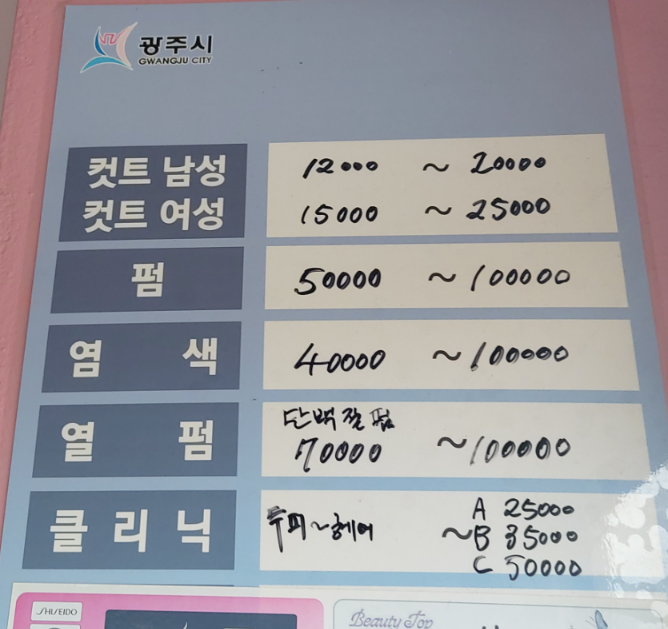 광주시
GWANGJU CITY
컷트 남성 12000 ~ 20000
컷트 여성 15000 ~ 25000
펌 50000 ~ 100000
염 색 40000 ~ 100000
단백질 펌
열 펌 70000 ~ 100000
A 25000
클리닉 두피~헤어 ~ B 35000
C 50000
SHISEIDO
Beauty Top